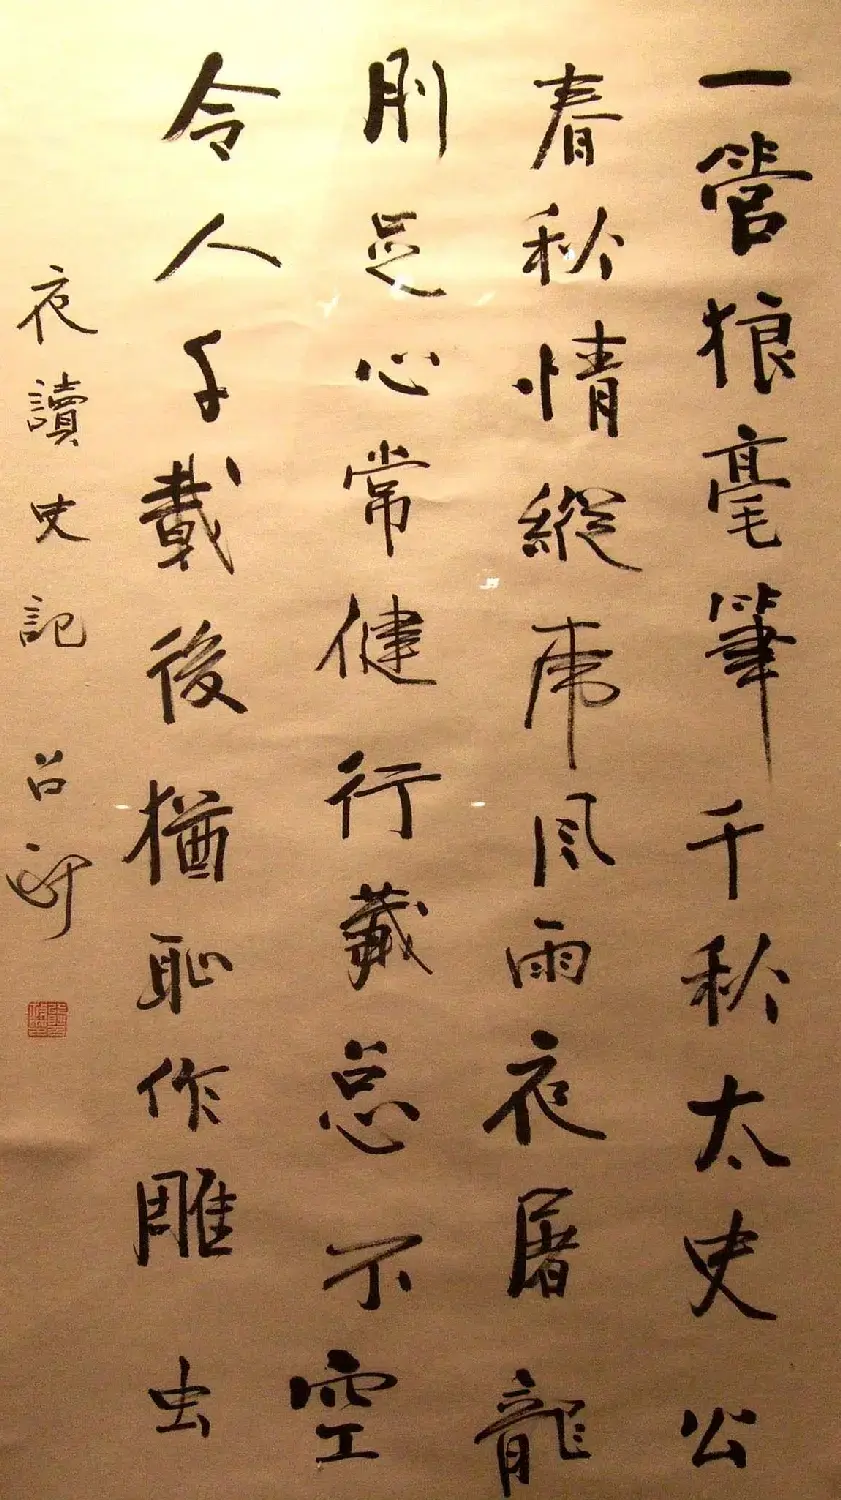 一管狼毫筆千秋太史公
春秋情縱虎風雨夜屠龍
刖足心常健行藏总不空
令人千載後猶恥作雕虫
夜讀史記